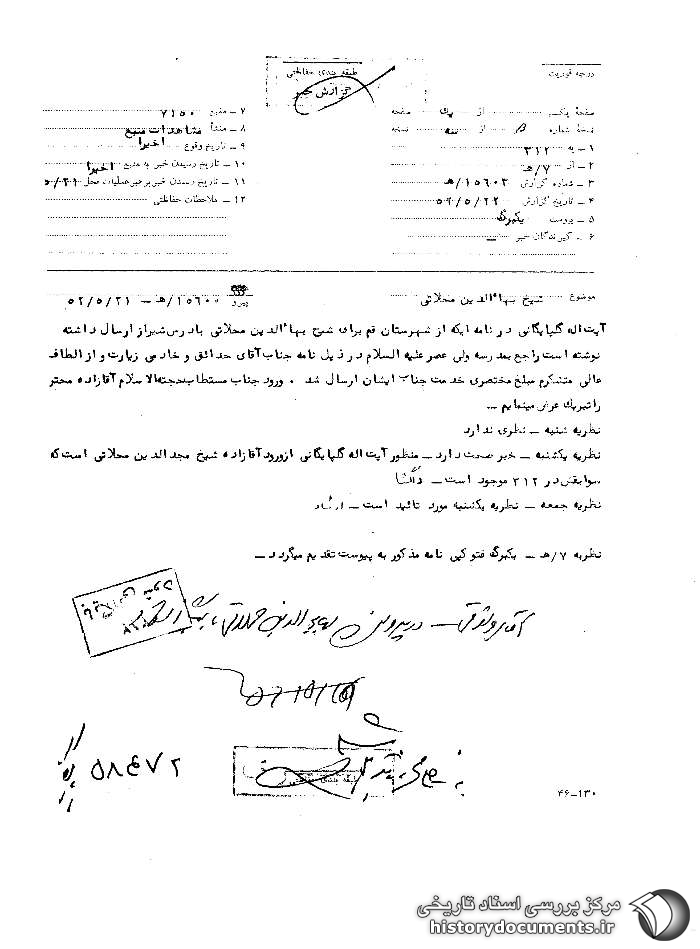 درجه فوریت
طبقه بندی حفاظتی
گزارش خبر
صفحهٔ یکم از یک صفحه
نسخهٔ شماره از سه نسخه
۱ ـ به ۳۱۲
۲ ـ از ۷/هـ
۳ ـ شماره گزارش ۱۵۶۰۲/هـ
۴ ـ تاریخ گزارش ۵۲/۵/۲۲
۵ ـ پیوست یکبرگ
۶ ـ گیرندگان خبر ـ
۷ ـ منبع ۷۱۵۰
۸ ـ منشأ مشاهدات منبع
۹ ـ تاریخ وقوع اخیرا
۱۰ ـ تاریخ رسیدن خبر به منبع اخیرا
۱۱ ـ تاریخ رسیدن خبر برهبر عملیات محل
۱۲ ـ ملاحظات حفاظتی
موضوع شیخ بهاءالدین محلاتی پیرو ۱۵۶۰۰/هـ ـ ۵۲/۵/۲۱
آیت اله گلپایگانی در نامه ایکه از شهرستان قم برای شیخ بهاءالدین محلاتی بادرس شیراز ارسال داشته
نوشته است راجع بمدرسه ولی عصر علیه السلام در ذیل نامه جناب آقای حدائق و خادمی زیارت و از الطاف
عالی متشکرم مبلغ مختصری خدمت جناب ایشان ارسال شد . ورود جناب مستطاب حجته الاسلام آقازاده محتر
را تبریک عرض مینمایم ـ
نظریه شنبه ـ نظری ندارد
نظریه یکشنبه ـ خبر صحت دارد ـ منظور آیت اله گلپایگانی ازورود آقازاده شیخ مجدالدین محلاتی است که
سوابقش در ۳۱۲ موجود است ـ دلگشا
نظریه جمعه ـ نظریه یکشنبه مورد تائید است ـ ارشاد
نظریه ۷/هـ ـ یکبرگ فتوکپی نامه مذکور به پیوست تقدیم میگردد ـ
طبقه بندی حفاظتی
۵۸۴۷۲
۴۶ـ۱۳۰
مرکز بررسی اسناد تاریخی
historydocuments.ir